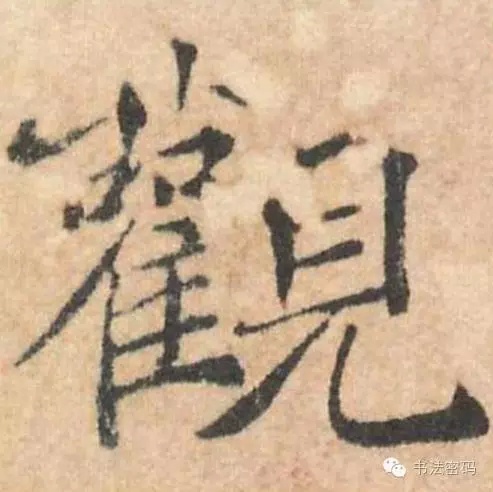 觀
书法密码